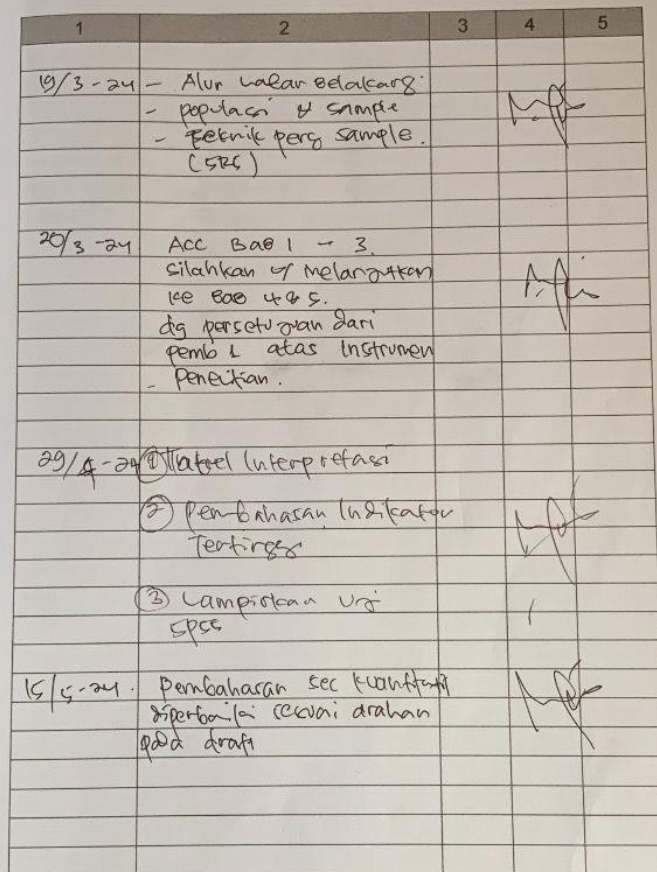 1 2 3 4 5
19/3-24 - Alur Latar Belakang.
- populasi & sample
- Teknik peng sample.
(SRS)
20/3-24 Acc Bab 1 - 3.
silahkan u/ melanjutkan
ke Bab 4 & 5.
dg persetujuan dari
pemb 1 atas Instrumen
- Penelitian.
29/4-24 ① Tabel Interpretasi
② Pembahasan Indikator
Tertinggi
③ Lampirkan Uji
SPSS
15/5-24. Pembahasan sec kuantitatif
diperbaiki sesuai arahan
pada draft